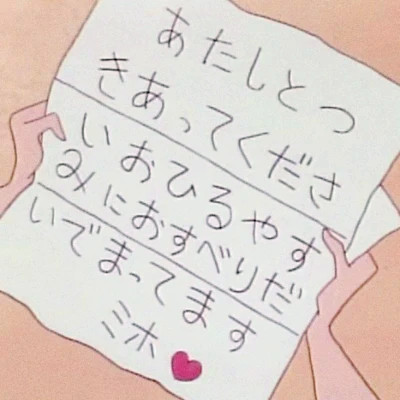 あたしとつ
きあってくださ
いおひるやす
みにおすべりだ
いでまってます
ミホ